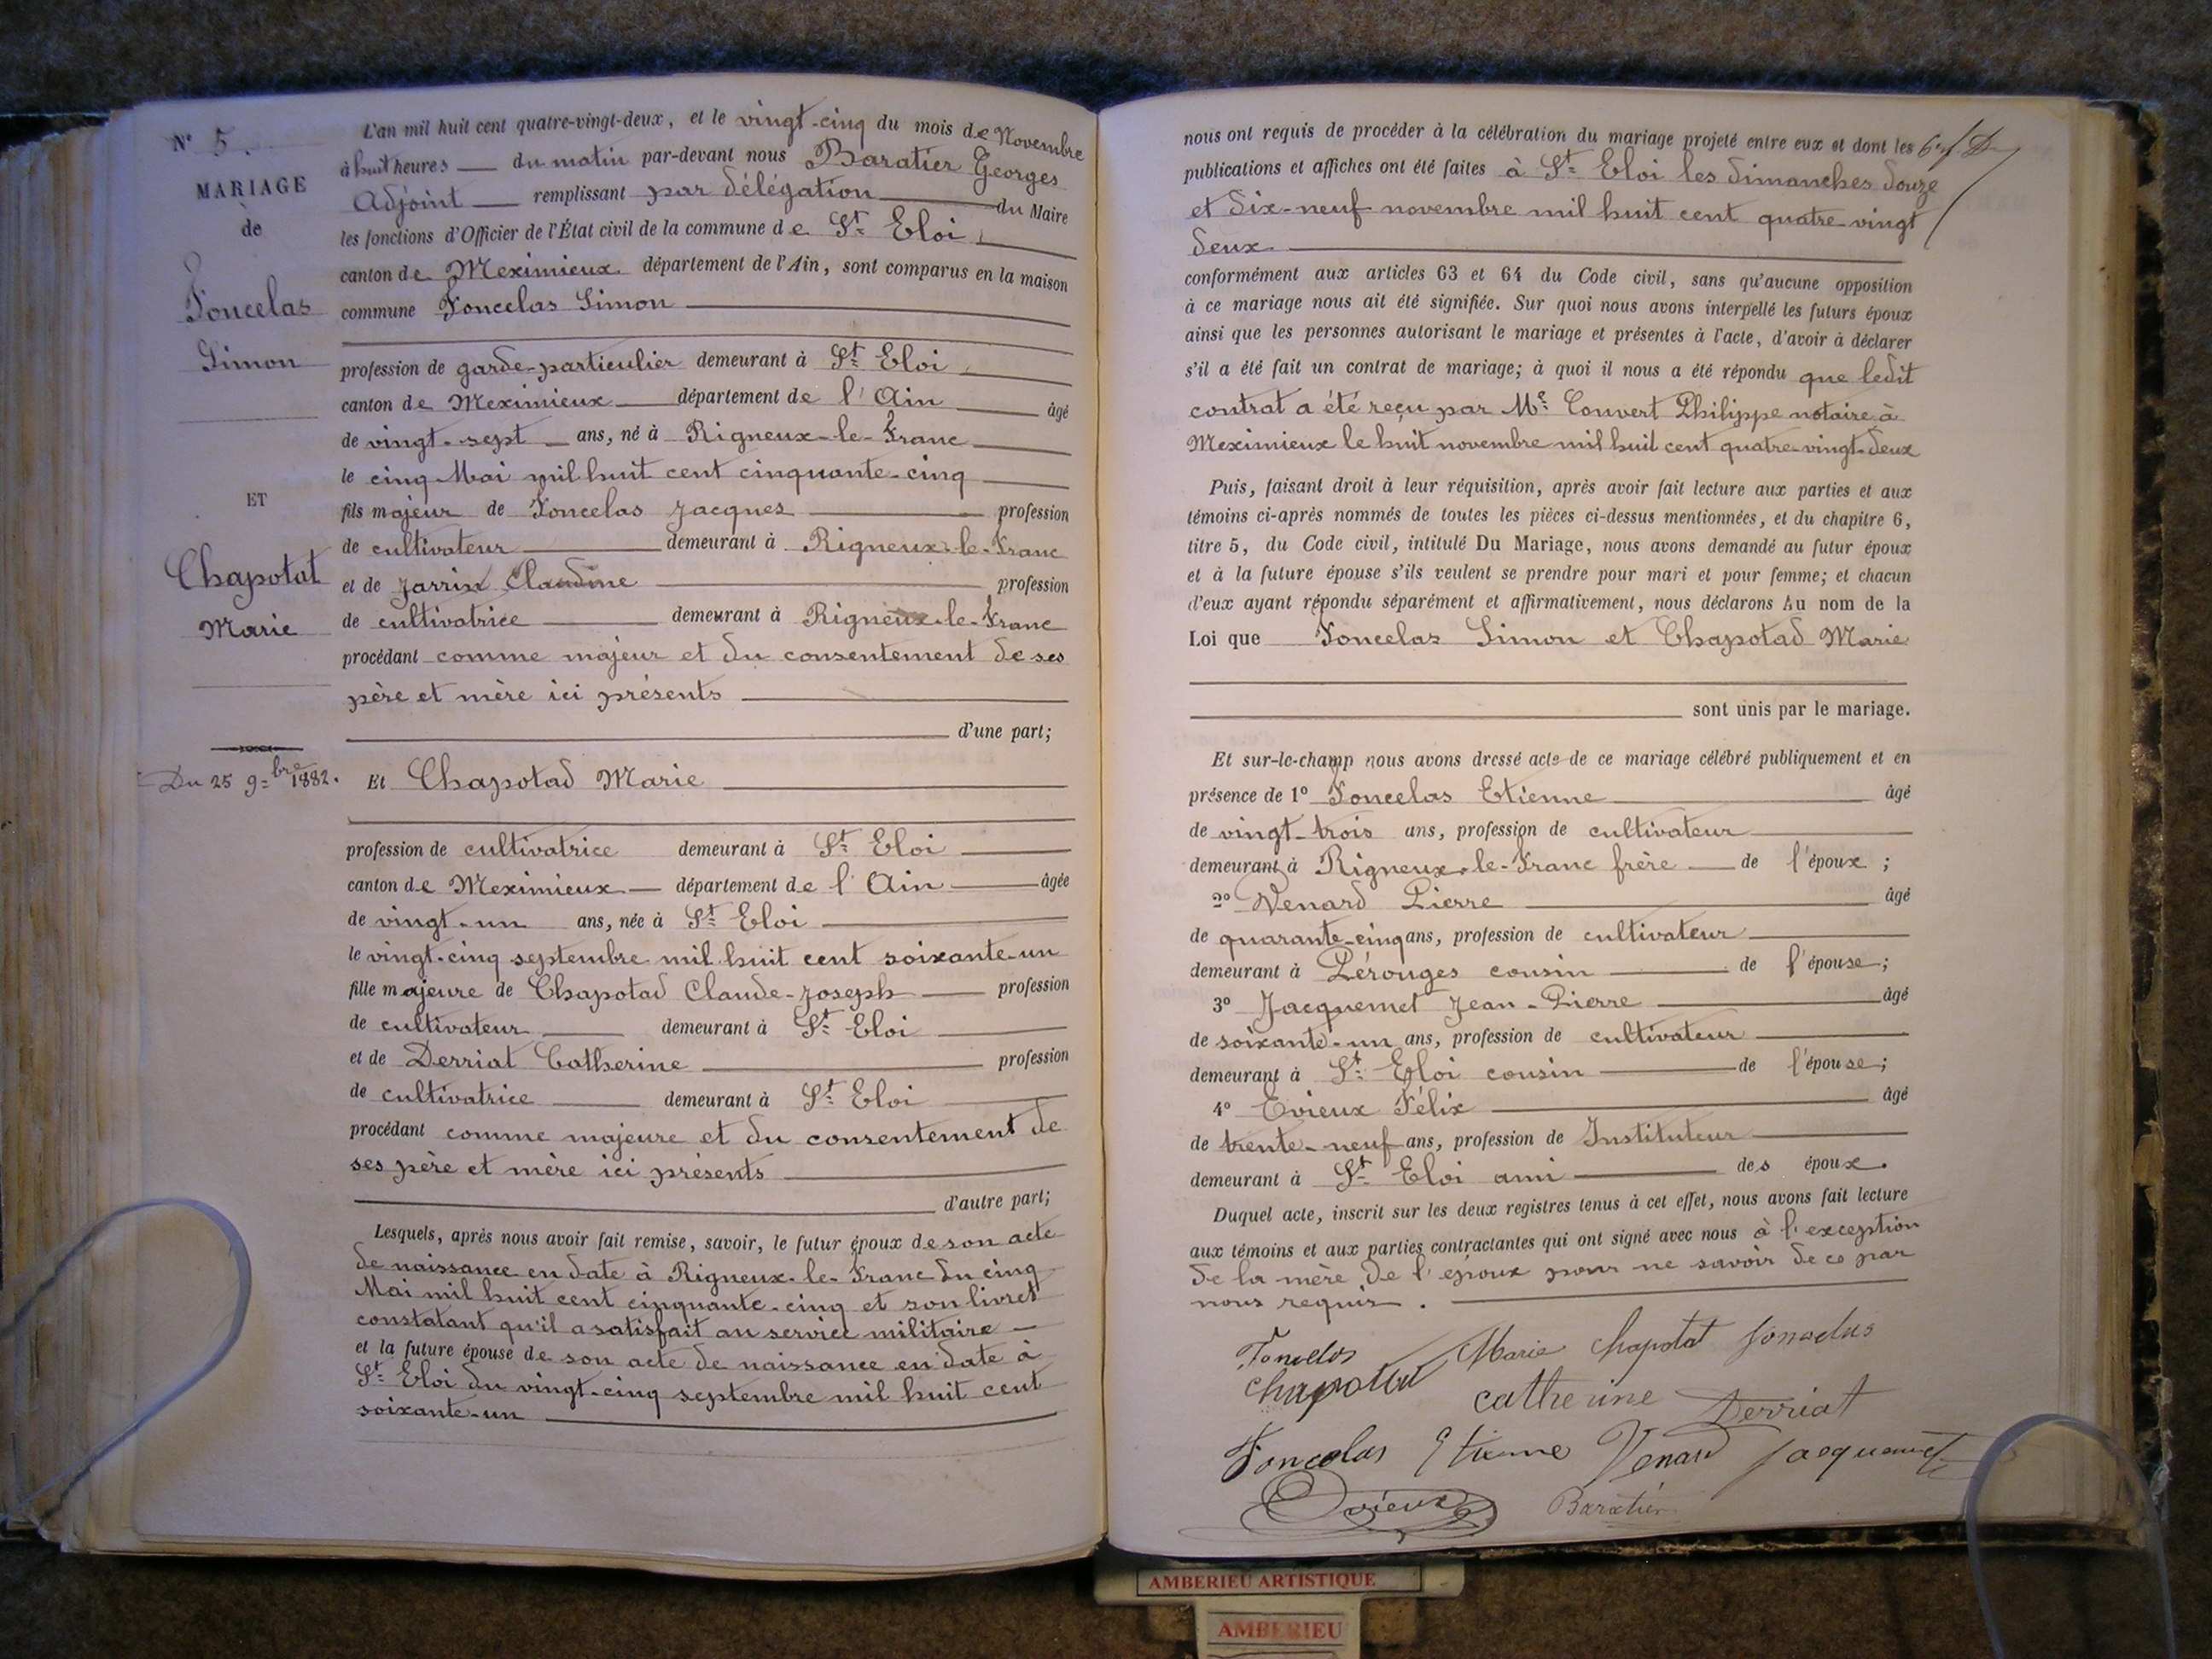 N° 5.
MARIAGE
de
Foncelas
Simon
ET
Chapotat
Marie
Du 25 9bre 1882.
L'an mil huit cent quatre-vingt-deux, et le vingt-cinq du mois de Novembre
à huit heures du matin par-devant nous Baratier Georges
Adjoint remplissant par délégation du Maire
les fonctions d'Officier de l'État civil de la commune de St Eloi,
canton de Meximieux département de l'Ain, sont comparus en la maison
commune Foncelas Simon
profession de garde-particulier demeurant à St Eloi,
canton de Meximieux département de l'Ain âgé
de vingt-sept ans, né à Rigneux-le-Franc
le cinq Mai mil huit cent cinquante-cinq
fils majeur de Foncelas Jacques profession
de cultivateur demeurant à Rigneux-le-Franc
et de Jarrin Claudine profession
de cultivatrice demeurant à Rigneux-le-Franc
procédant comme majeur et du consentement de ses
père et mère ici présents
d'une part;
Et Chapotad Marie
profession de cultivatrice demeurant à St Eloi
canton de Meximieux département de l'Ain âgée
de vingt-un ans, née à St Eloi
le vingt-cinq septembre mil huit cent soixante-un
fille majeure de Chapotad Claude-Joseph profession
de cultivateur demeurant à St Eloi
et de Derriat Catherine profession
de cultivatrice demeurant à St Eloi
procédant comme majeure et du consentement de
ses père et mère ici présents
d'autre part;
Lesquels, après nous avoir fait remise, savoir, le futur époux de son acte
de naissance en date à Rigneux-le-Franc du cinq
Mai mil huit cent cinquante-cinq et son livret
constatant qu'il a satisfait au service militaire
et la future épouse de son acte de naissance en date à
St Eloi du vingt-cinq septembre mil huit cent
soixante-un
nous ont requis de procéder à la célébration du mariage projeté entre eux et dont les
publications et affiches ont été faites à St Eloi les dimanches douze
et dix-neuf novembre mil huit cent quatre-vingt
deux
conformément aux articles 63 et 64 du Code civil, sans qu'aucune opposition
à ce mariage nous ait été signifiée. Sur quoi nous avons interpellé les futurs époux
ainsi que les personnes autorisant le mariage et présentes à l'acte, d'avoir à déclarer
s'il a été fait un contrat de mariage; à quoi il nous a été répondu que ledit
contrat a été reçu par Me Convert Philippe notaire à
Meximieux le huit novembre mil huit cent quatre-vingt-deux
Puis, faisant droit à leur réquisition, après avoir fait lecture aux parties et aux
témoins ci-après nommés de toutes les pièces ci-dessus mentionnées, et du chapitre 6,
titre 5, du Code civil, intitulé Du Mariage, nous avons demandé au futur époux
et à la future épouse s'ils veulent se prendre pour mari et pour femme; et chacun
d'eux ayant répondu séparément et affirmativement, nous déclarons Au nom de la
Loi que Foncelas Simon et Chapotad Marie
sont unis par le mariage.
Et sur-le-champ nous avons dressé acte de ce mariage célébré publiquement et en
présence de 1° Foncelas Etienne âgé
de vingt-trois ans, profession de cultivateur
demeurant à Rigneux-le-Franc frère de l'époux;
2° Venard Pierre âgé
de quarante-cinq ans, profession de cultivateur
demeurant à Pérouges cousin de l'épouse;
3° Jacquemet Jean-Pierre âgé
de soixante-un ans, profession de cultivateur
demeurant à St Eloi cousin de l'épouse;
4° Evieux Félix âgé
de trente-neuf ans, profession de Instituteur
demeurant à St Eloi ami des époux.
Duquel acte, inscrit sur les deux registres tenus à cet effet, nous avons fait lecture
aux témoins et aux parties contractantes qui ont signé avec nous à l'exception
de la mère de l'époux pour ne savoir de ce par
nous requis.
Foncelas Marie Chapotat foncelas
Chapottat Catherine Derriat
Foncelas Etienne Venard Jacquemet
Evieux Baratier
AMBERIEU ARTISTIQUE
AMBERIEU